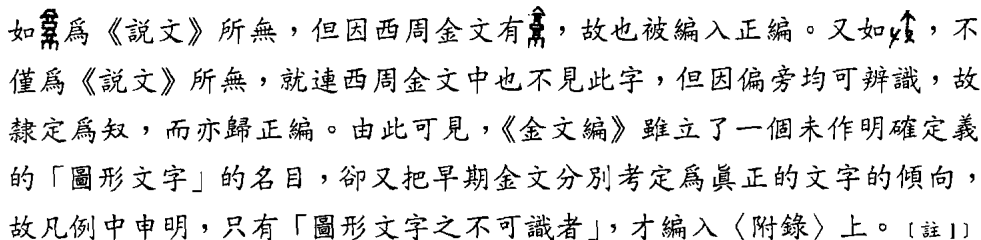 如爲《説文》所無，但因西周金文有，故也被編入正編。又如，不
僅爲《説文》所無，就連西周金文中也不見此字，但因偏旁均可辨識，故
隸定爲𢻫，而亦歸正編。由此可見，《金文編》雖立了一個未作明確定義
的「圖形文字」的名目，卻又把早期金文分別考定爲眞正的文字的傾向，
故凡例中申明，只有「圖形文字之不可識者」，才編入〈附錄〉上。［註1］